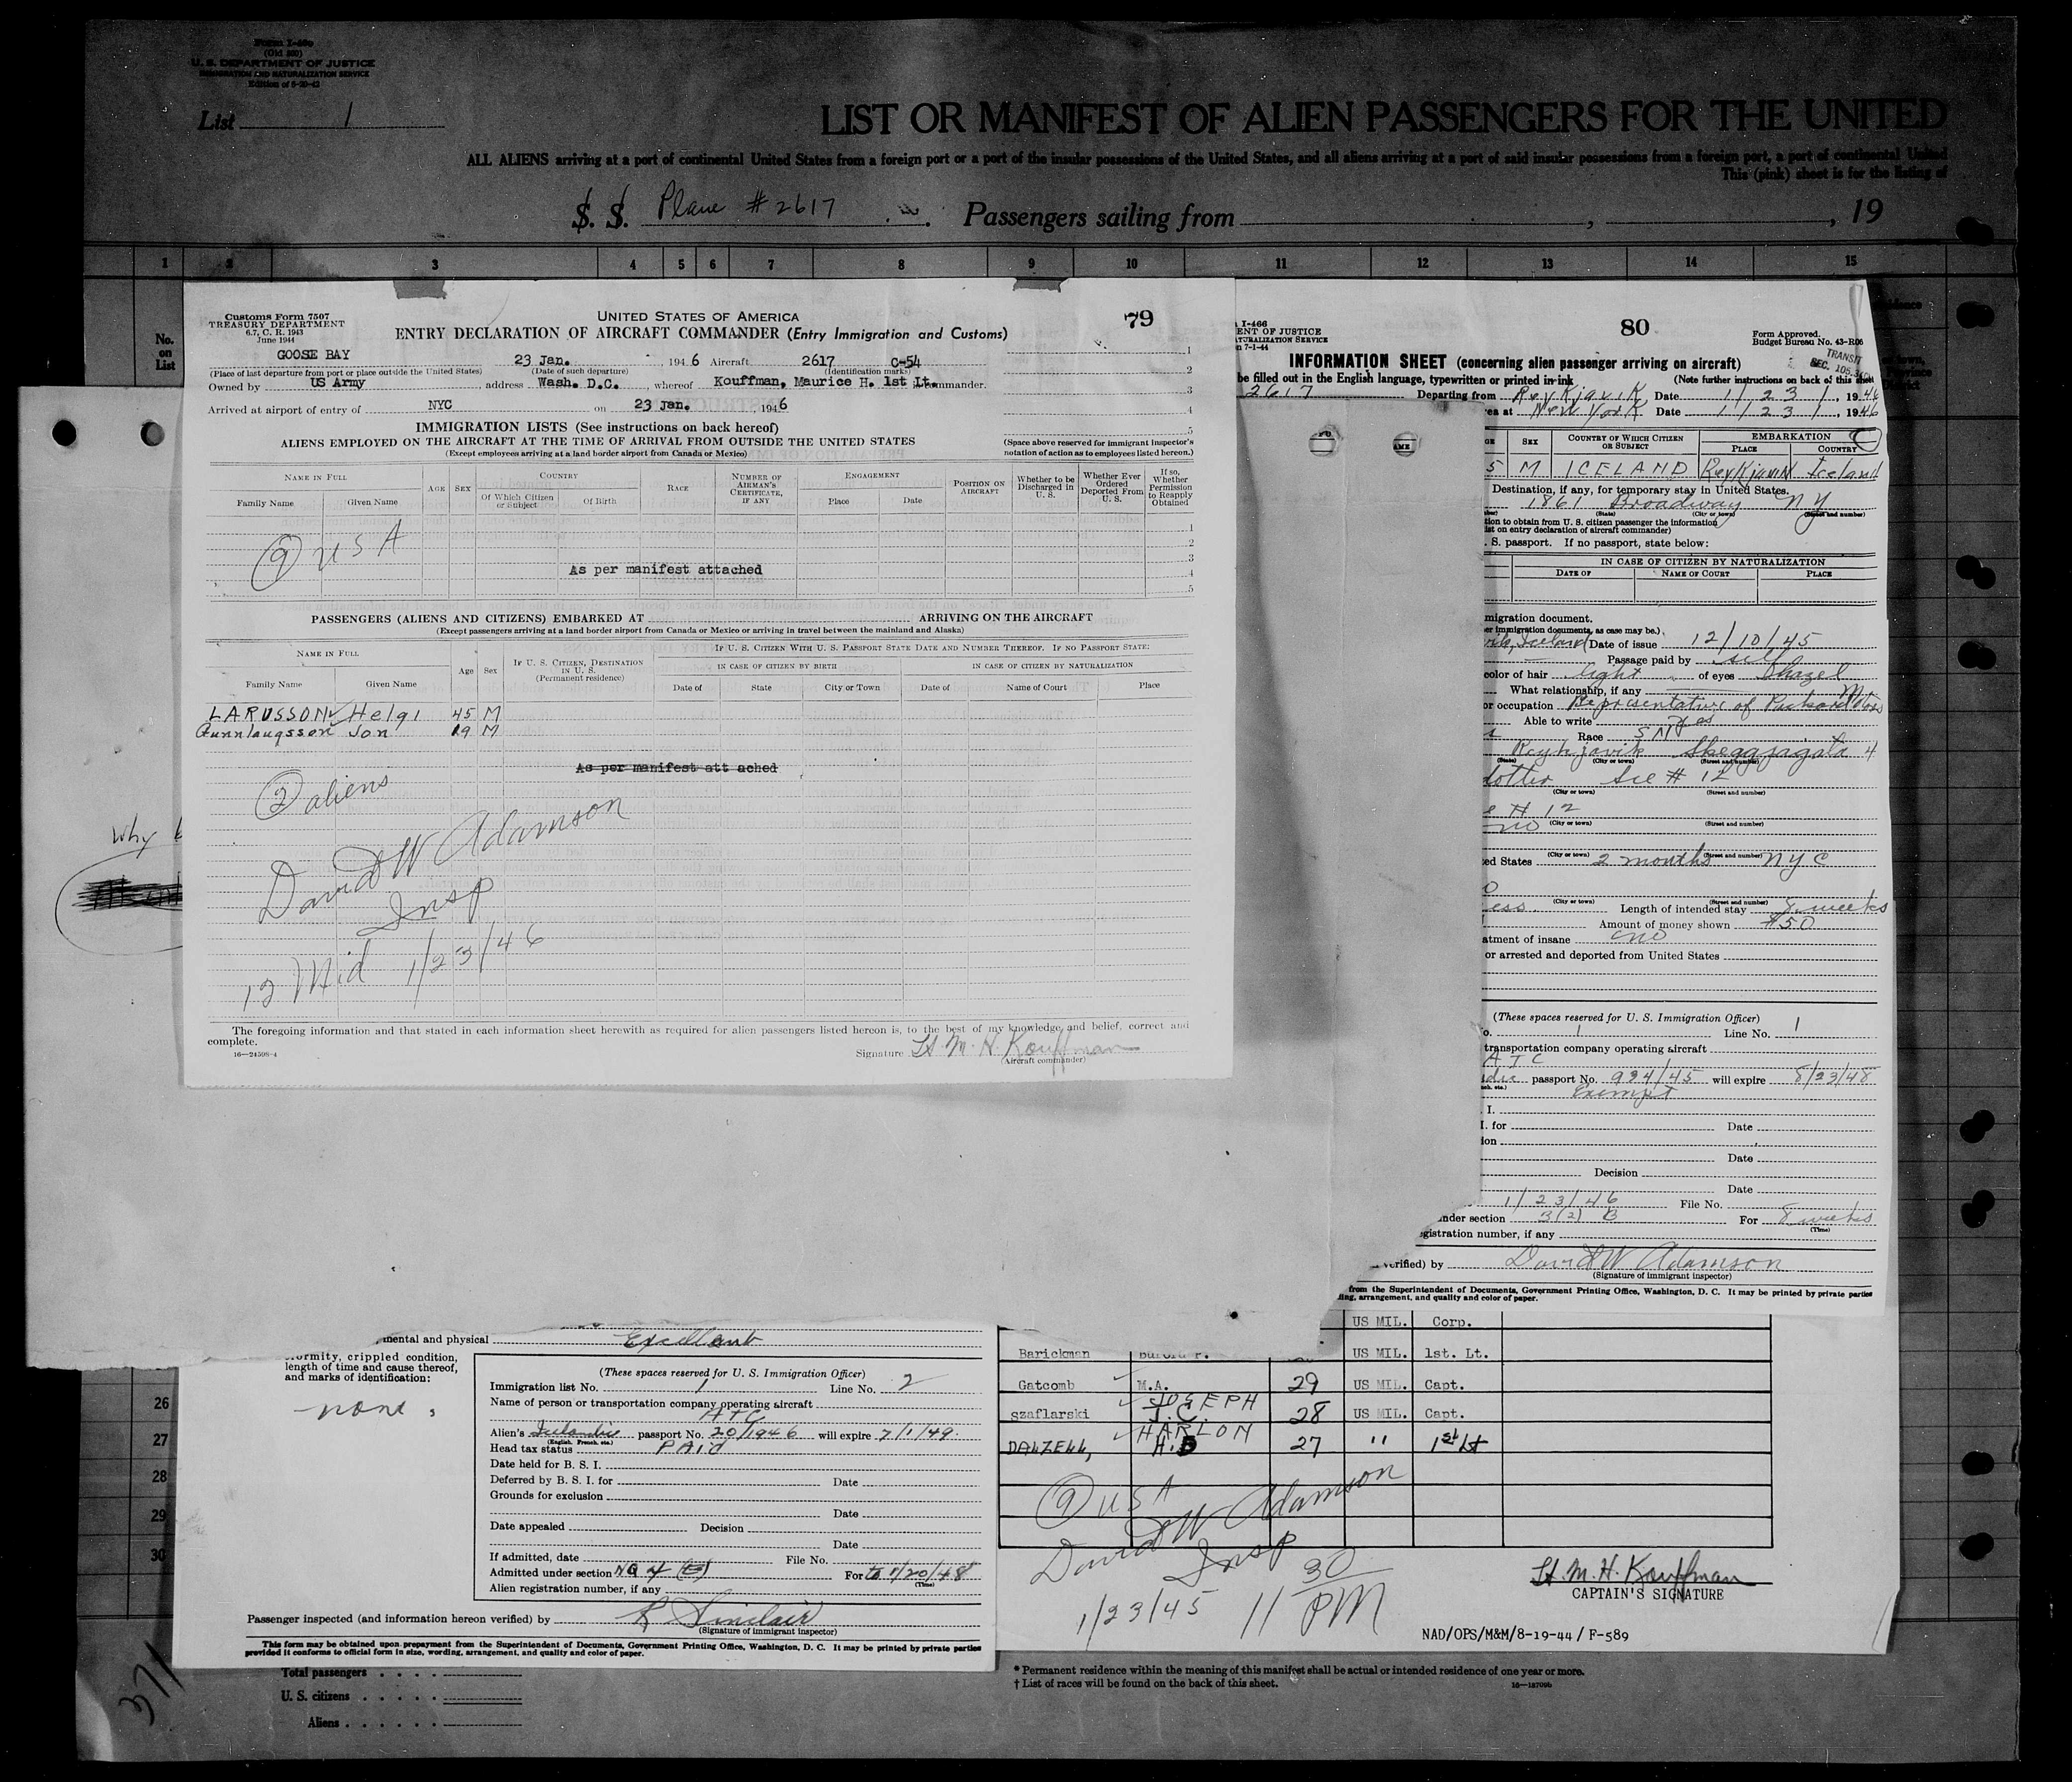 Form I-466
(Old 500)
U. S. DEPARTMENT OF JUSTICE
IMMIGRATION AND NATURALIZATION SERVICE
Edition of 6-20-42
List 1
LIST OR MANIFEST OF ALIEN PASSENGERS FOR THE UNITED
ALL ALIENS arriving at a port of continental United States from a foreign port or a port of the insular possessions of the United States, and all aliens arriving at a port of said insular possessions from a foreign port, a port of continental United
This (pink) sheet is for the listing of
S. S. Plane #2617 Passengers sailing from , , 19
1 2 3 4 5 6 7 8 9 10 11 12 13 14 15
No.
on
List
Customs Form 7507
TREASURY DEPARTMENT
6.7, C. R. 1943
June 1944
UNITED STATES OF AMERICA
79
ENTRY DECLARATION OF AIRCRAFT COMMANDER (Entry Immigration and Customs)
GOOSE BAY 23 Jan. 194 6 Aircraft 2617 C-54
(Place of last departure from port or place outside the United States) (Date of such departure) (Identification marks)
Owned by US Army address Wash. D.C. whereof Kouffman, Maurice H. 1st Lt. commander.
Arrived at airport of entry of NYC on 23 Jan. 194 6
IMMIGRATION LISTS (See instructions on back hereof)
ALIENS EMPLOYED ON THE AIRCRAFT AT THE TIME OF ARRIVAL FROM OUTSIDE THE UNITED STATES
(Except employees arriving at a land border airport from Canada or Mexico)
1
2
3
4
5
(Space above reserved for immigrant inspector's
notation of action as to employees listed hereon.)
NAME IN FULL
Family Name Given Name
AGE SEX
COUNTRY
Of Which Citizen or Subject Of Birth
RACE
NUMBER OF AIRMAN'S CERTIFICATE, IF ANY
ENGAGEMENT
Place Date
POSITION ON AIRCRAFT
Whether to be Discharged in U. S.
Whether Ever Ordered Deported From U. S.
If so, Whether Permission to Reapply Obtained
9 USA
As per manifest attached
1
2
3
4
5
PASSENGERS (ALIENS AND CITIZENS) EMBARKED AT ARRIVING ON THE AIRCRAFT
(Except passengers arriving at a land border airport from Canada or Mexico or arriving in travel between the mainland and Alaska)
NAME IN FULL
Family Name Given Name
Age Sex
IF U. S. CITIZEN, DESTINATION IN U. S. (Permanent residence)
IF U. S. CITIZEN WITH U. S. PASSPORT STATE DATE AND NUMBER THEREOF. IF NO PASSPORT STATE:
IN CASE OF CITIZEN BY BIRTH IN CASE OF CITIZEN BY NATURALIZATION
Date of State City or Town Date of Name of Court Place
LARUSSON Helgi 45 M
Gunnlaugsson Jon 19 M
As per manifest att ached
2 aliens
David W Adamson
Insp
12 Mid 1/23/46
The foregoing information and that stated in each information sheet herewith as required for alien passengers listed hereon is, to the best of my knowledge and belief, correct and
complete.
16—24598-4
Signature Lt. M. H. Kouffman
(Aircraft commander)
Why
I-466
ENT OF JUSTICE
ATURALIZATION SERVICE
7-1-44
80
Form Approved.
Budget Bureau No. 43-R06
TRANSIT
SEC. 105.3
INFORMATION SHEET (concerning alien passenger arriving on aircraft)
be filled out in the English language, typewritten or printed in ink (Note further instructions on back of this sheet
2617 Departing from Reykjavik, Date 1/23/, 1946
ea at New York Date 1/23/, 1946
SEX COUNTRY OF WHICH CITIZEN OR SUBJECT EMBARKATION
PLACE COUNTRY
5 M ICELAND Reykjavik Iceland
Destination, if any, for temporary stay in United States.
1861 Broadway NY
(State) (City or town) (Street and number)
tion to obtain from U. S. citizen passenger the information
ist on entry declaration of aircraft commander)
. S. passport. If no passport, state below:
IN CASE OF CITIZEN BY NATURALIZATION
DATE OF NAME OF COURT PLACE
migration document.
er immigration documents, as case may be.)
Iceland Date of issue 12/10/45
Passage paid by self
color of hair light of eyes hazel
What relationship, if any
or occupation Representative of Packard Motors
Able to write Yes
Race
Reykjavik Skeggjagata 4
(State) (City or town) (Street and number)
dotter See # 12
(City or town) (Street and number)
# 12
no (City or town) (Street and number)
ed States 2 months NYC
(City or town) (Street and number)
(City or town) (Street and number)
ess. Length of intended stay 8 weeks
Amount of money shown $50
atment of insane no
or arrested and deported from United States
(These spaces reserved for U. S. Immigration Officer)
o. 1 Line No. 1
transportation company operating aircraft
ATC
passport No. 934/45 will expire 8/23/48
Exempt
. I.
I. for Date
ion
Date
Decision
Date
1/23/46 File No.
nder section 3(2) B For 8 weeks
(Time)
gistration number, if any
verified) by David W Adamson
(Signature of immigrant inspector)
from the Superintendent of Documents, Government Printing Office, Washington, D. C. It may be printed by private parties
ing, arrangement, and quality and color of paper.
mental and physical Excellent
formity, crippled condition,
length of time and cause thereof,
and marks of identification:
none.
(These spaces reserved for U. S. Immigration Officer)
Immigration list No. 1 Line No. 2
Name of person or transportation company operating aircraft
ATC
Alien's Icelandic passport No. 20/1946 will expire 7/1/49.
(English, French, etc.)
Head tax status PAid
Date held for B. S. I.
Deferred by B. S. I. for Date
Grounds for exclusion
Date
Date appealed Decision
Date
If admitted, date File No.
Admitted under section NQ 4 (E) For to 1/20/48
(Time)
Alien registration number, if any
Passenger inspected (and information hereon verified) by R Sinclair
(Signature of immigrant inspector)
This form may be obtained upon prepayment from the Superintendent of Documents, Government Printing Office, Washington, D. C. It may be printed by private parties
provided it conforms to official form in size, wording, arrangement, and quality and color of paper.
US MIL. Corp.
Barickman Buford P. US MIL. 1st. Lt.
Gatcomb M.A. 29 US MIL. Capt.
JOSEPH
Szaflarski J.C. 28 US MIL. Capt.
HARLON
DALZELL, H.D 27 " 1st Lt
9 USA
David W Adamson
Insp
1/23/45 11 30 PM
Lt. M. H. Kouffman
CAPTAIN'S SIGNATURE
NAD/OPS/M&M/8-19-44 / F-589
26
27
28
29
30
371
Total passengers
U. S. citizens
Aliens
* Permanent residence within the meaning of this manifest shall be actual or intended residence of one year or more.
† List of races will be found on the back of this sheet.